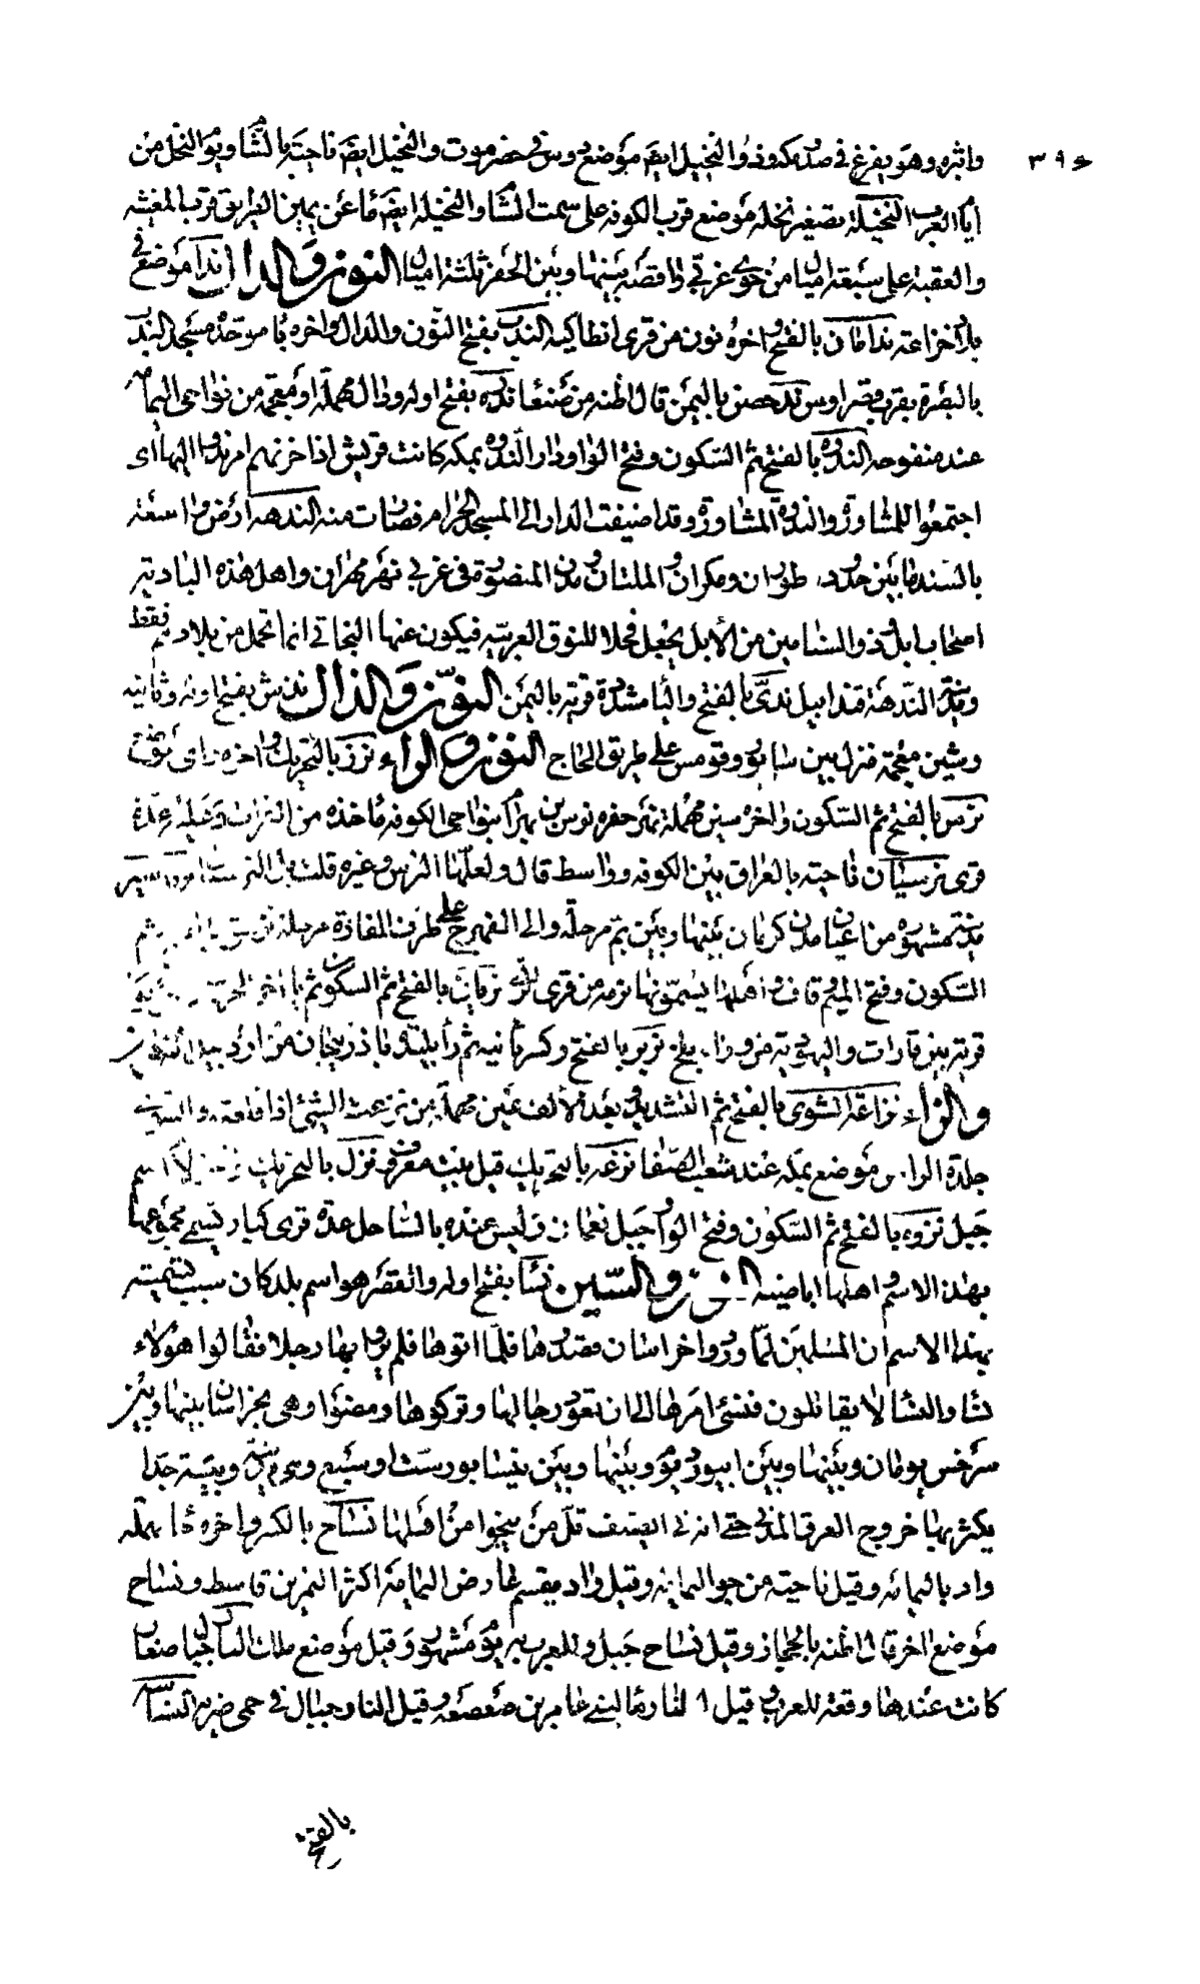 ٣٩٤
واثره وهو يفرغ في صدر مكروذ والنخيل ايضا موضع وس في حضرموت والنخيل ايضا ناحيته بالشام ويوم النخل من
ايام العرب النخيلة تصغير نخله موضع قرب الكوفه على سمت الشام والنخيله ايضا ماء عن يمين الطريق قرب المغيثه
والعقبة على سبعة اميال من جوى غربي واقصه بينها وبين الحفر ثلثة اميال النون والدال ندا موضع في
بلاد خزاعة ندامان بالفتح واخره نون من قرى انطاكيه الندب بفتح النون والدال واخره باء موحده مسجد الندب
بالبصرة بقرب قصر اوس ند حصن باليمن قال اظنه من صنعا نده بفتح اوله ودال مهملة او معجمه من نواحي اليمامه
عند منفوحه الندوه بالفتح ثم السكون وفتح الواو ودار الندوه بمكه كانت قريش اذا حزبهم امر ندوا اليها اى
اجتمعوا للمشاورة والندوة المشاورة وقد اضيفت الدار الى المسجد الحرام فصارت منه الندهه ارض واسعة
بالسند ما بين حدود طوران ومكران والملتان ومدن المنصورة في غربي نهر مهران واهل هذه البادية
اصحاب ابل ذو السنامين من الابل يجعل فحلا للنوق العربيه فيكون عنها البخاتي انما تحمل من بلادهم فقط
ومدينة الندهة قندابيل ندى بالفتح واليا مشددة قرية باليمن النون والذال نذش بفتح اوله وثانيه
وشين معجمة منزل بين سابور وقومس على طريق الحاج النون والراء نرز بالتحريك واخره زاى
نرس بالفتح ثم السكون واخره سين مهملة نهر حفره نرس بن بهرام بنواحى الكوفه ماخذه من الفرات وعليه عدة
قرى نرسيان ناحيته بالعراق بين الكوفه وواسط قال ولعلها النرس وغيره قلت
مدينة مشهوره من اعيان مدن كرمان بينها وبين بم مرحلة والى الفهرج على طرف المفازة مرحلة
السكون وفتح الميم وقاف واهلها يسمونها نرمه من قرى الرى نرمان بالفتح ثم السكون ثم
قرية بين فارات واليهودية من وراء بلخ نرير بالفتح وكسر ثانيه ثم راء بليدة باذربيجان من اردبيل
والزاء نزاعة الشوى بالفتح ثم التشديد وبعد الالف عين مهملة من نزعت الشئ اذا قلعته والشوى
جلدة الراس موضع بمكه عند شعب الصفا نزعه بالتحريك قيل بيت معروف نزل بالتحريك اسم
جبل نزوه بالفتح ثم السكون وفتح الواو جبل نعمان وليس عنده بالساحل عدة قرى كبار تسمى مجموعها
بهذا الاسم واهلها اباضيه النون والسين نسا بفتح اوله والقصر هو اسم بلد كان سبب تسميته
بهذا الاسم ان المسلمين لما وردوا خراسان قصدوها فلما اتوها فلم يروا بها رجلا فقالوا هؤلاء
نسا والنسا لا يقاتلون فننسئ امرها الى ان تعود رجالها وتركوها ومضوا وهى بخراسان بينها وبين
سرخس يومان وبينها وبين ابيورد يوم وبينها وبين نيسابور ست او سبع وهى مدينة وبيئة جدا
يكثر بها خروج العرق المدنى حتى انه في الصيف قل من ينجوا من اهلها نساح بالكسر واخره حا مهملة
واد باليمامه وقيل ناحيته من جو اليمامه وقيل واد يقسم عارض اليمامة اكثر النمر بن قاسط ونساح
موضع اخر قال اظنه بالحجاز وقيل نساح جبل وللعرب به يوم مشهور وقيل موضع ملك النسار جبال صغار
كانت عندها وقعة للعرب قيل النسار ماء لبنى عامر بن صعصعة وقيل النسار جبال في حمى ضريه النسا
بالفتح